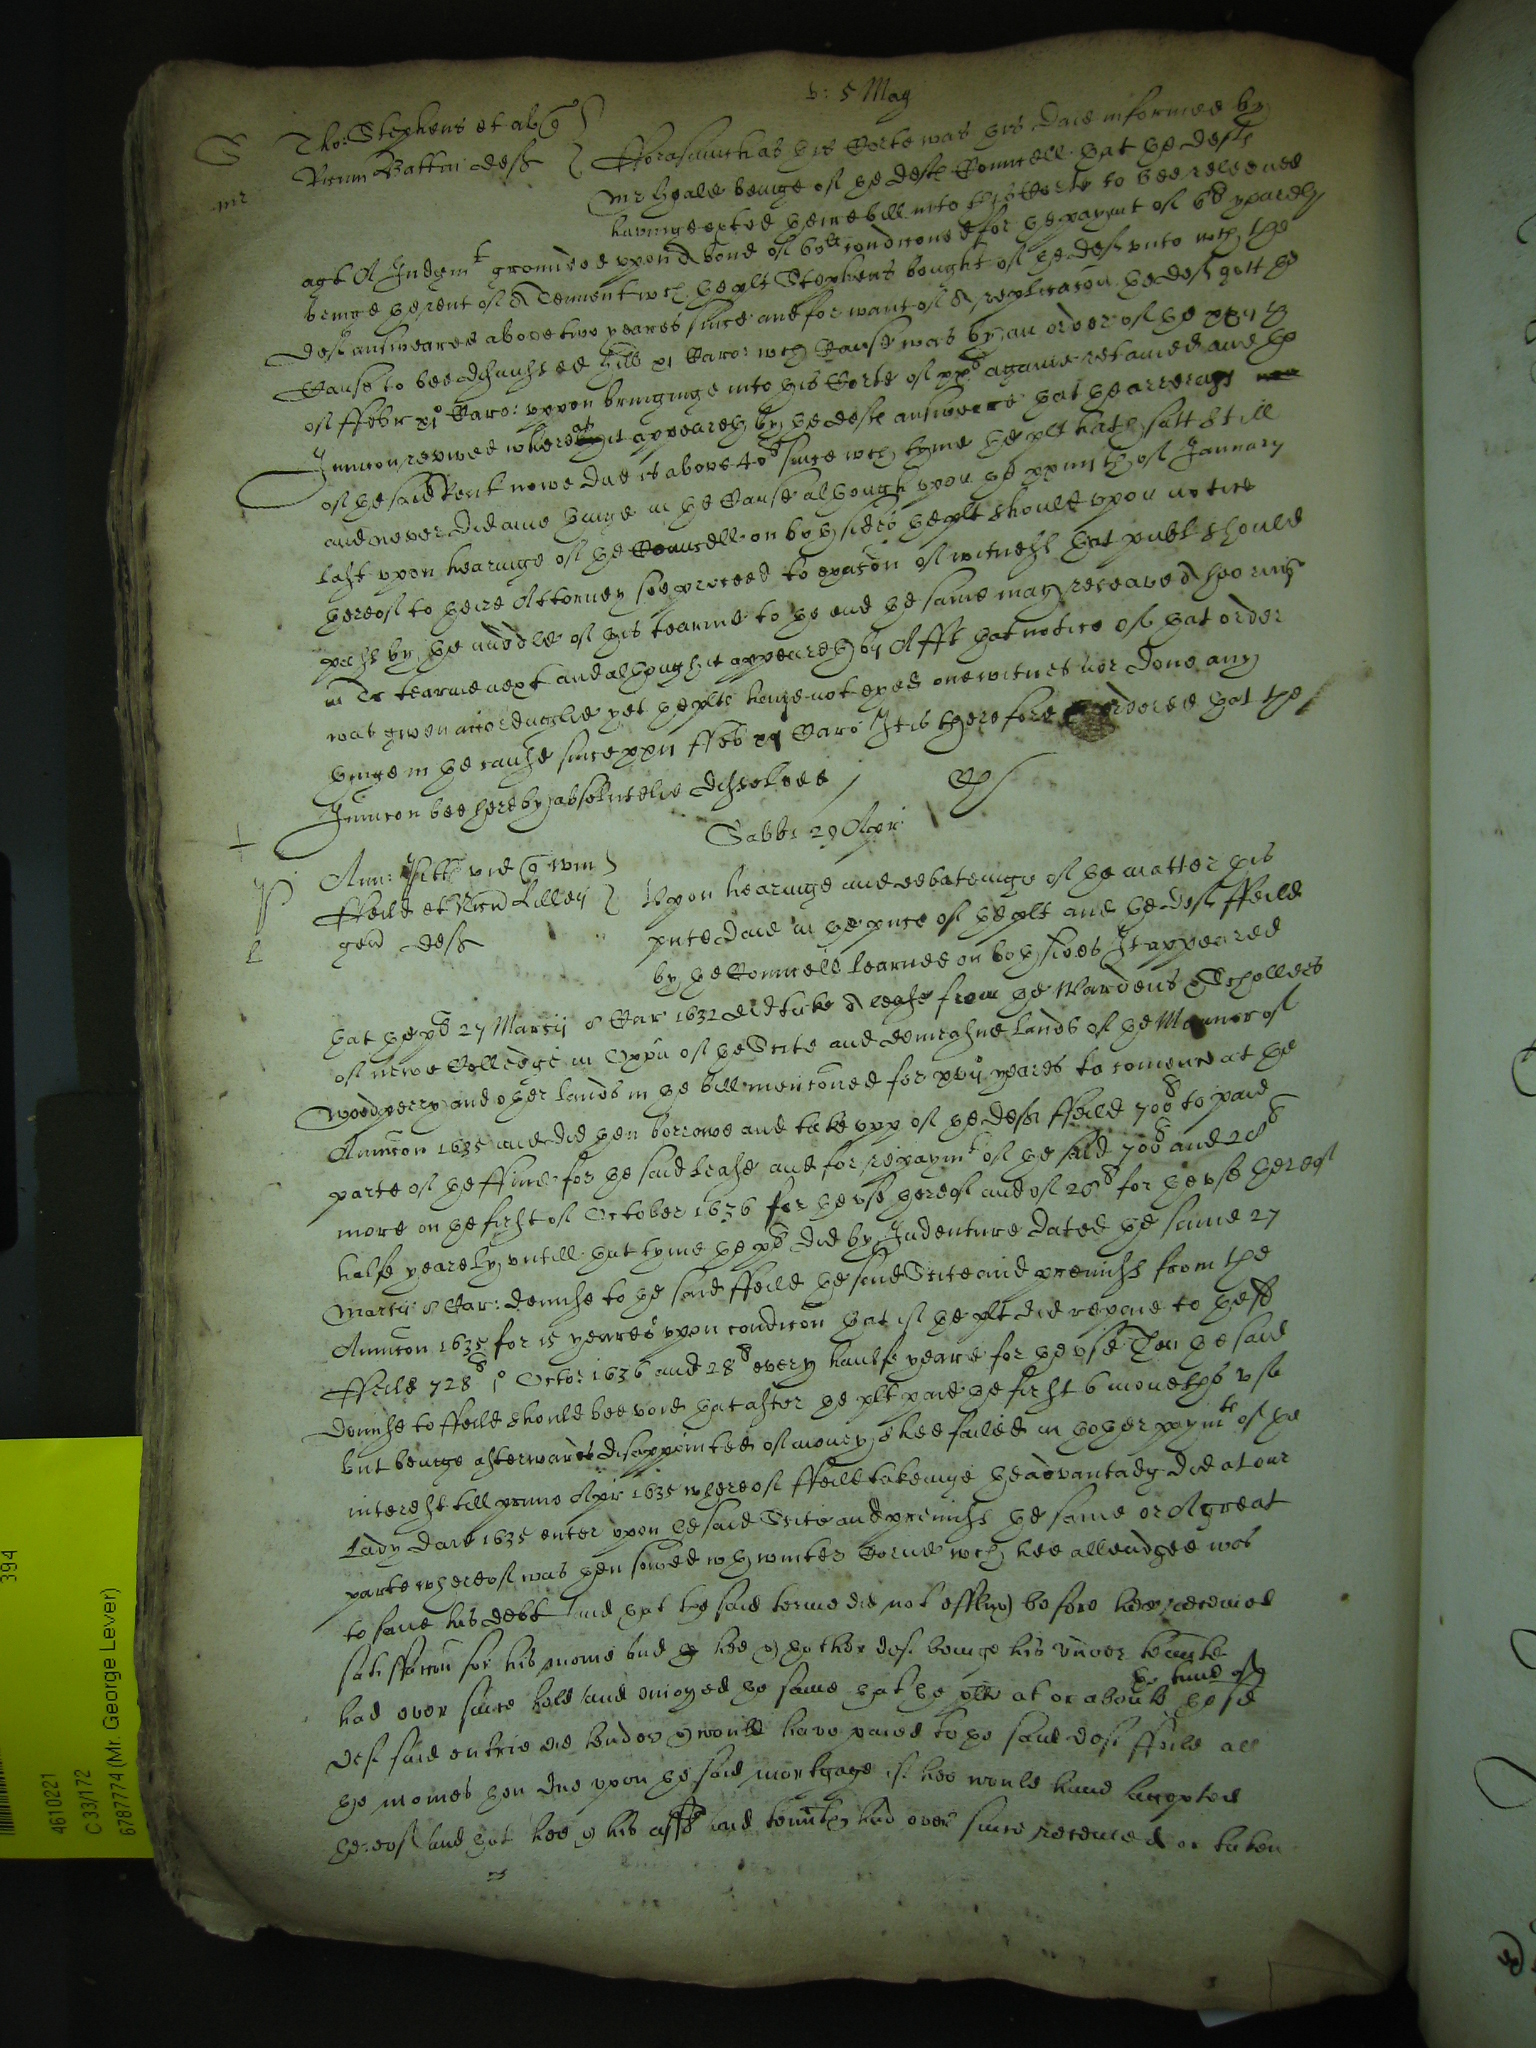 v: 5 May
S Tho: Stephens et al q
mr Batten deft
Fforasmuch as this Corte was this daie informed by
Mr Heale beinge of the defts Councell that the defts
havinge exted theire bill into this Corte to bee releeved
agt A Judgmt grounded vpon A bond of 60li conditoned for the paymt of 6li yearely
beinge the rent of A Tenemt wch the plt Stephens bought of the deft vnto wch the
deft answeared above two yeares since and for want of A replicacon the deft gott the
Cause to bee dismissed Caro: wch Cause was by an order of the
of ffebr xio Caro: vppon bringinge into this Corte of againe retained and the
Iniuncon revived whereas it appeareth by the defts answeare that the arrerages
of the said Rent nowe due is above 40li since wch tyme the plt hath satt still
and never did anie thinge in the Cause although vpon the of January
last vpon hearinge of the Councell on both sides the plt should vpon notice
thereof to theire Attorney soe proceed to exacon of witnesses that publ should
passe by the middle of this tearme to the end the same may receave A hearing
in Tr tearme next and although it appeareth by Afft that notice of that order
was given accordinglie yet the plts have not exed one witnes nor done any
thinge in the cause since ffeb xi Caro It is therefore ordered that the
Iniuncon bee hereby absolutelie dissolved /
Sabbi 29 Apr
Ann: vid q Wm
P Ffeild et Ricd Lilley
L gen defts
Vpon hearinge and debateinge of the matter this
pnte daie in the pnce of the plt and the deft Ffeild
by the Councell learned on both sides It appeared
that the plt 27 Marcij 8 Car 1632 did take A lease from the Wardens & Schollers
of newe Colledge in Oxon of the Scite and demeasne lands of the Mannor of
Woodperry and other lands in the bill mencioned for yeares to comence at the
Annuncon 1635 and did then borrowe and take vpp of the deft Ffeild 700li to paie
parte of the Ffine for the said lease and for repaymt of the said 700li and 28li
more on the first of October 1636 for the vse thereof and of 28li for the vse thereof
halfe yearely vntill that tyme the plt did by Indenture dated the same 27
Marcij 8 Car: demise to the said Ffeild the said Scite and premisses from the
Annuncon 1635 for 15 yeares vpon condicon that if the plt did repaie to the sd
Ffeild 728li 1o Octo: 1636 and 28li every haulfe yeare for the vse Then the said
demise to Ffeild should bee void that after the plt paid the first 6 moneths vse
but beinge afterwards disappointed of money shee failed in th other paymts of the
interest till primo Apr 1635 whereof Ffeild takeinge the advantadg did at our
Lady daie 1635 enter vpon the said Scite and premisses the same or A great
parte whereof was then sowed wth winter Corne wch hee alleadged was
to save his debt and that the said terme did not before hee receaved
satisffaccon for his monie and hee & th other deft beinge his vnder tenante
had ever since held and enioyed the same that the plt at or about the time of the sd
deft said entrie did tender & would have paied to the said deft Ffeild all
the monies then due vpon the said mortgage if hee would have accepted
thereof and that hee & his asss and tennts had ever since received or taken
4610221
C 33/172
6787774 (Mr. George Lever)
394